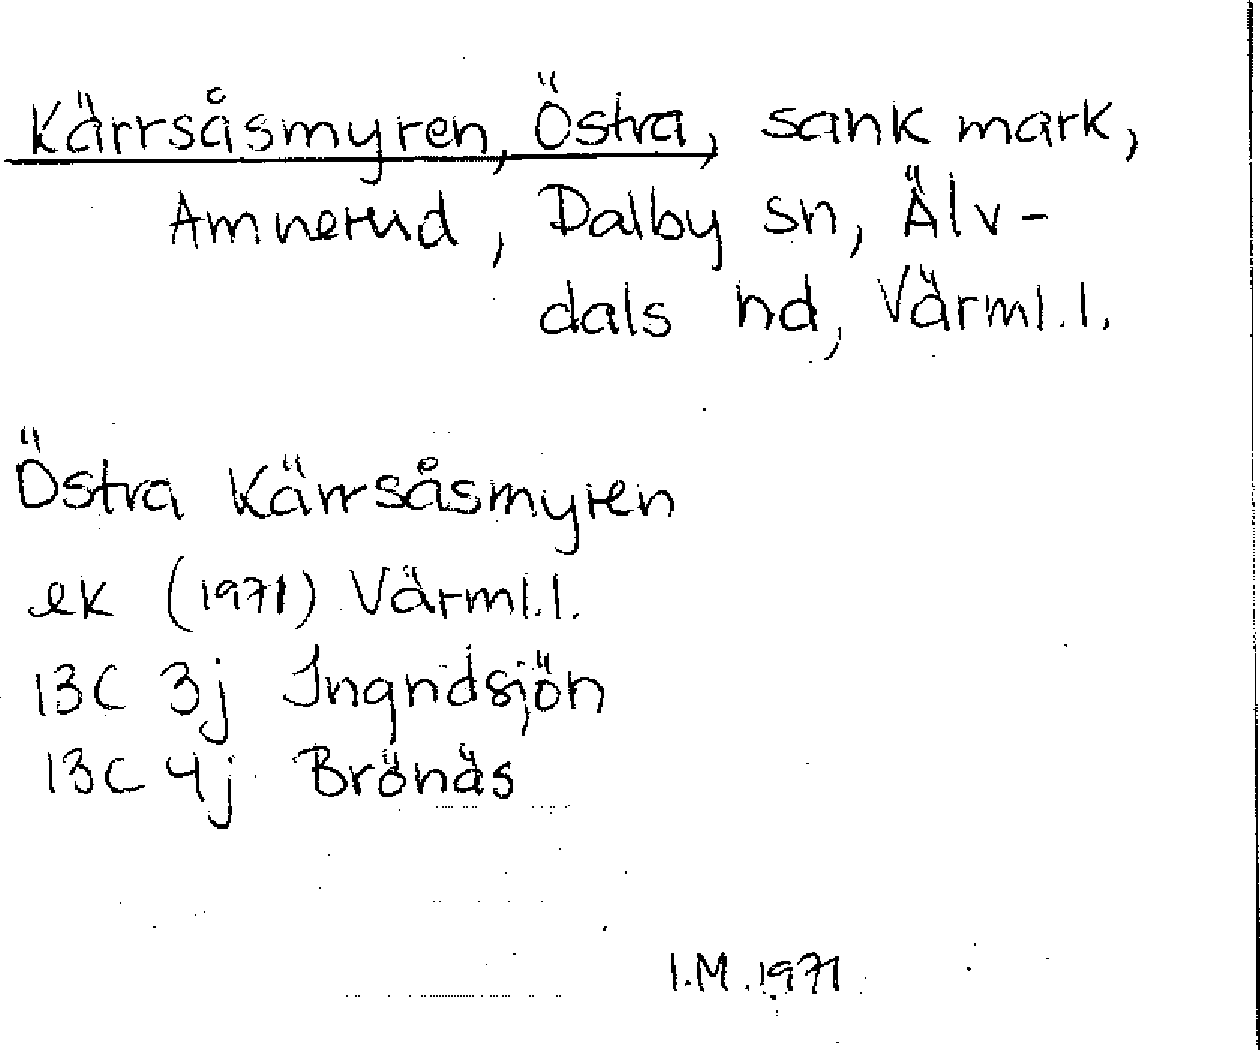 Kärrsåsmyren, Östra, sank mark,
Amnerud, Dalby sn, Älv-
dals hd, Värml.l.
Östra Kärrsåsmyren
ek (1971) Värml.l.
13C 3j Ingridsjön
13C 4j Brönäs
I.M. 1971